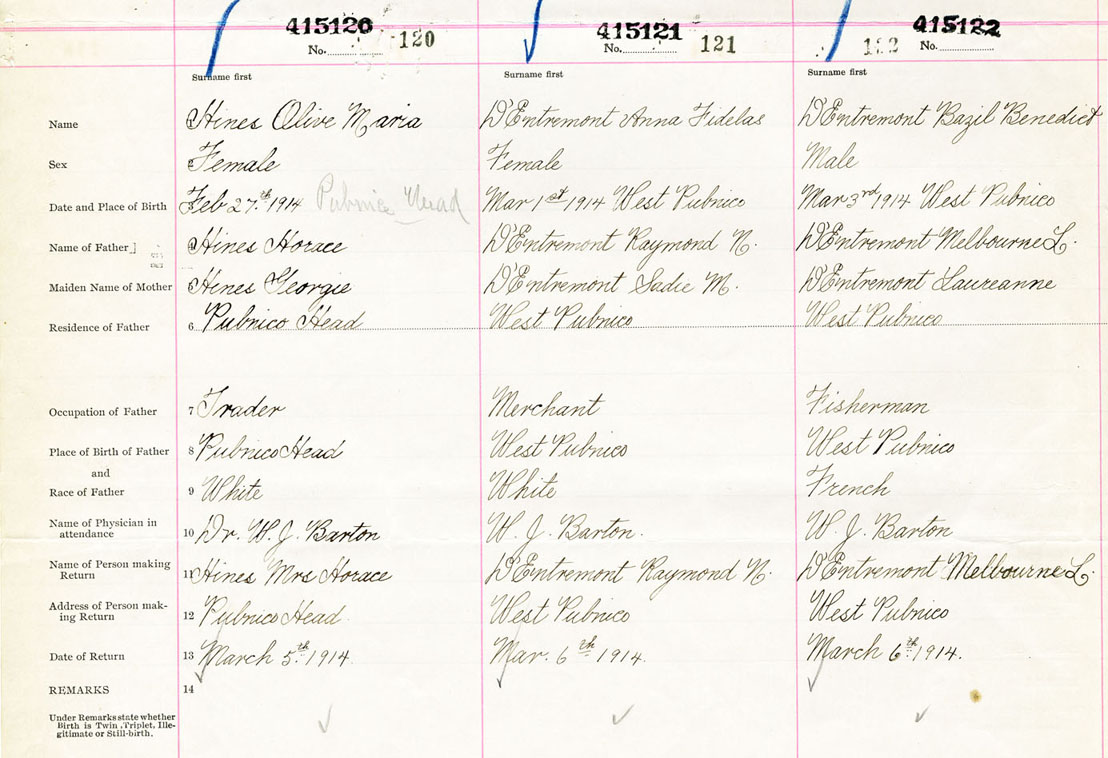 415120 415121 415122
No. 120 No. 121 132 No.
Surname first Surname first Surname first
Name 1 Hines Olive Maria D'Entremont Anna Fidelas D'Entremont Bazil Benedict
Sex 2 Female Female Male
Date and Place of Birth 3 Feb 27th 1914 Pubnico Head Mar 1st 1914 West Pubnico Mar 3rd 1914 West Pubnico
Name of Father 4 Hines Horace D'Entremont Raymond N. D'Entremont Melbourne L.
Maiden Name of Mother 5 Hines Georgie D'Entremont Sadie M. D'Entremont Laureanne
Residence of Father 6 Pubnico Head West Pubnico West Pubnico
Occupation of Father 7 Trader Merchant Fisherman
Place of Birth of Father 8 Pubnico Head West Pubnico West Pubnico
and
Race of Father 9 White White French
Name of Physician in
attendance 10 Dr. W. J. Barton W. J. Barton. W. J. Barton
Name of Person making
Return 11 Hines Mrs Horace D'Entremont Raymond N. D'Entremont Melbourne L.
Address of Person mak-
ing Return 12 Pubnico Head West Pubnico West Pubnico
Date of Return 13 March 5th 1914. Mar. 6th 1914. March 6th 1914.
REMARKS 14
Under Remarks state whether
Birth is Twin, Triplet, Ille-
gitimate or Still-birth.